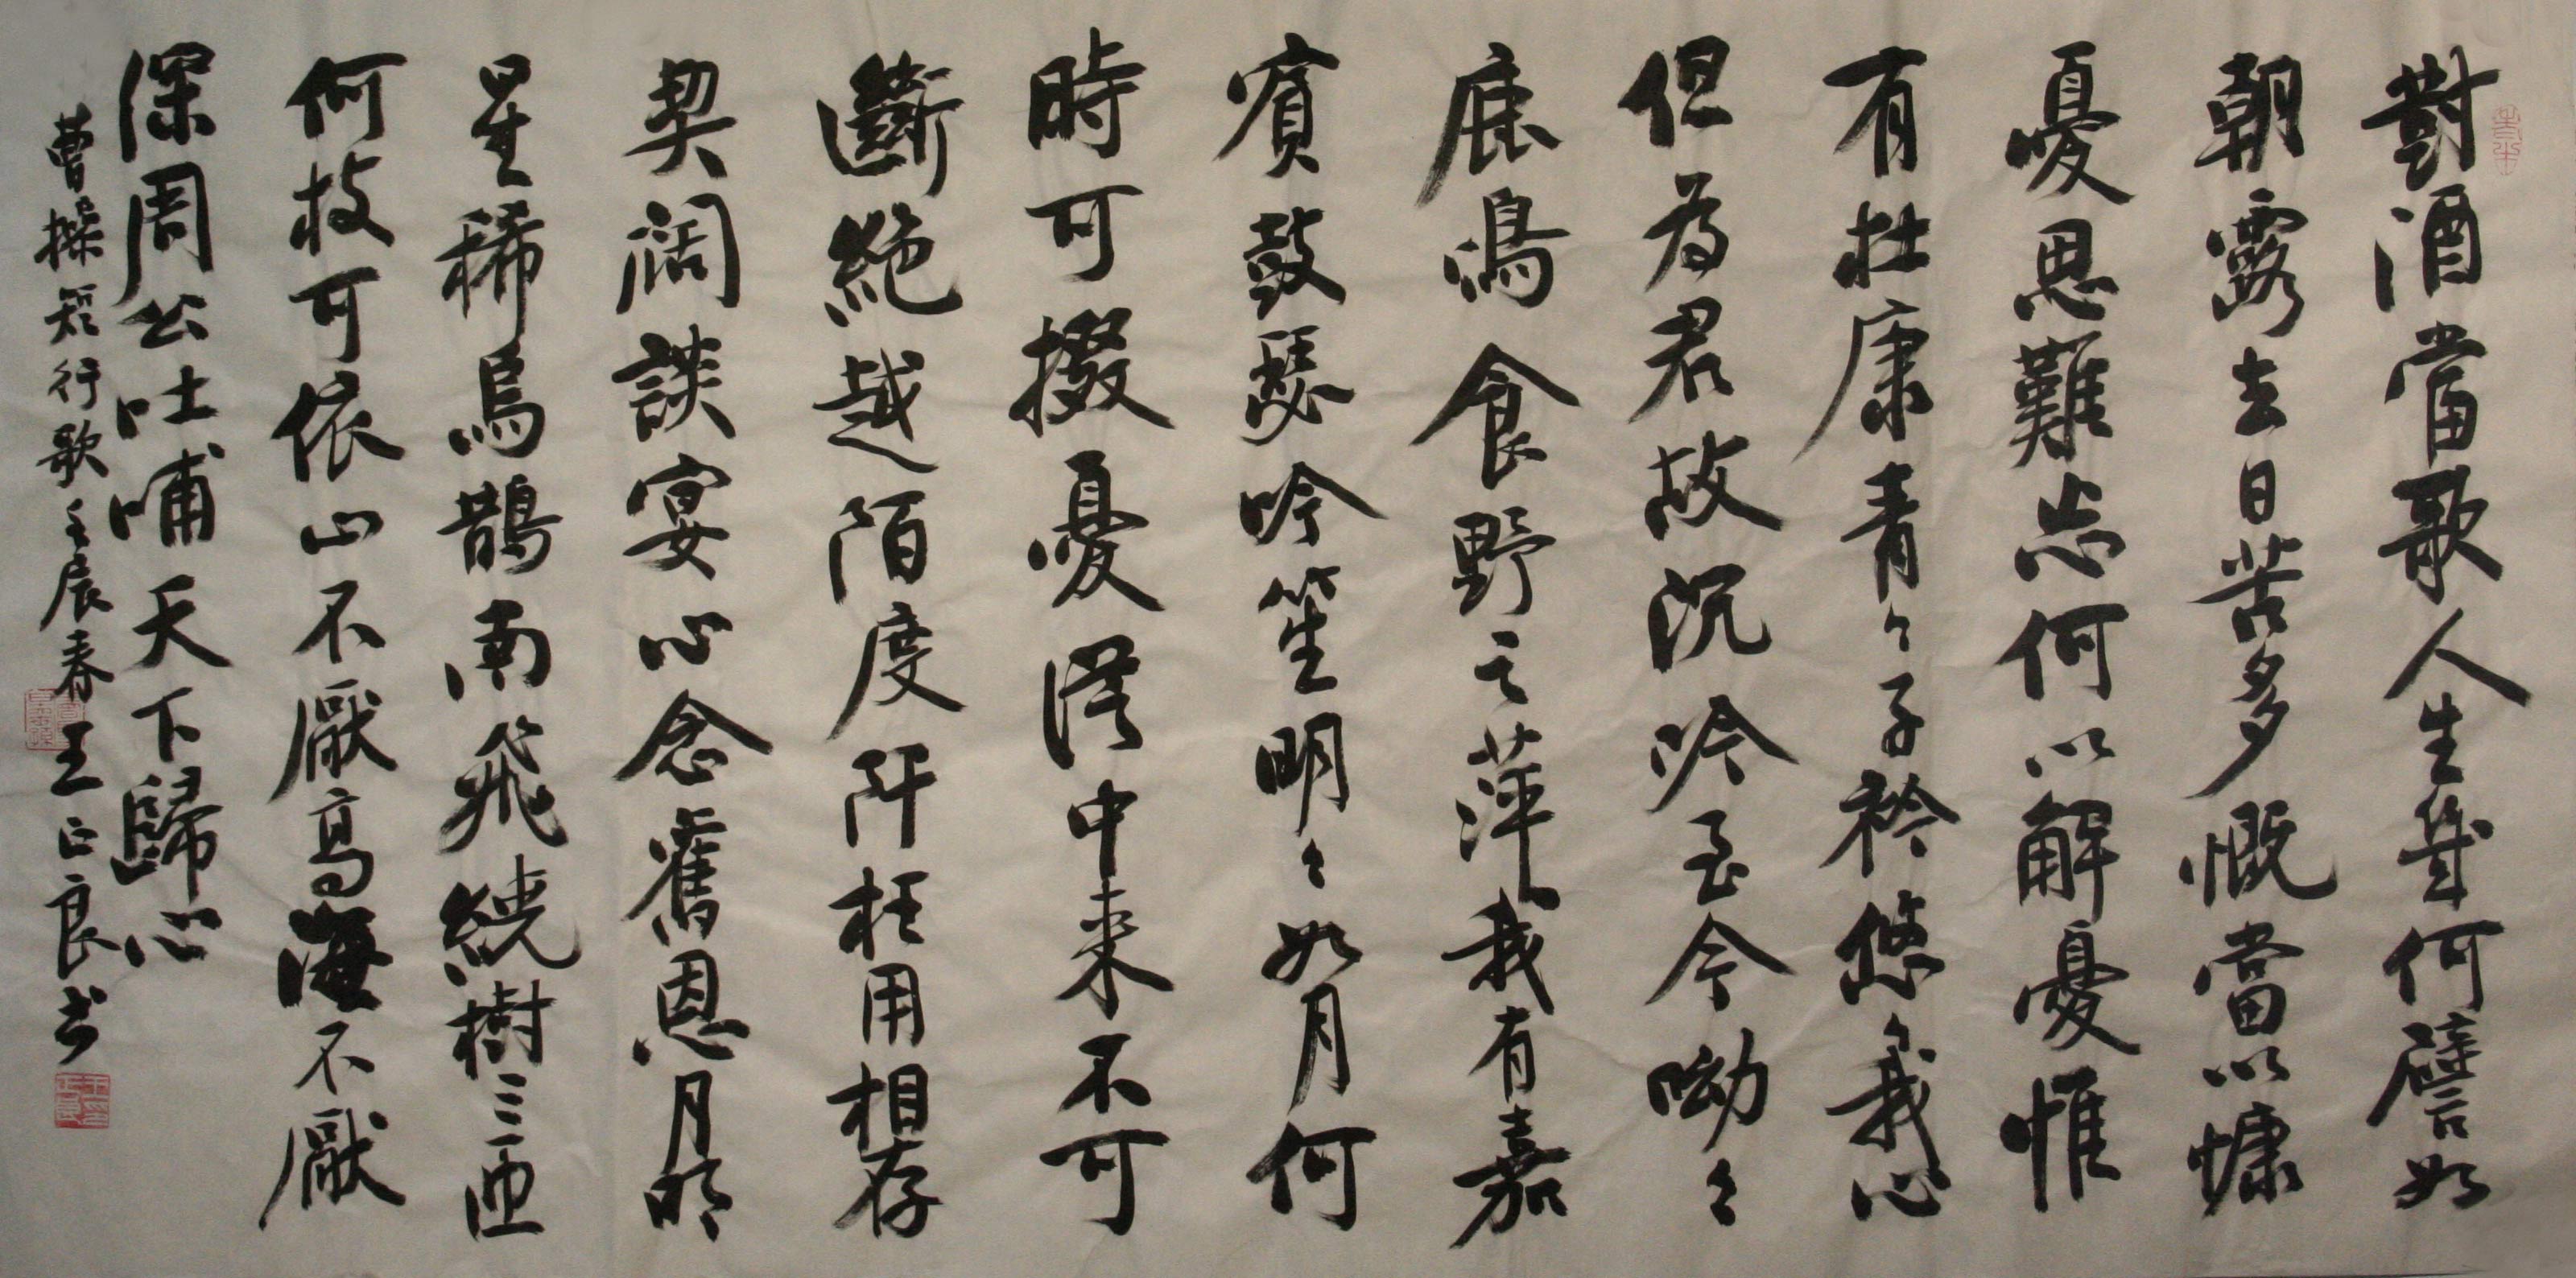 對酒當歌人生幾何譬如
朝露去日苦多慨當以慷
憂思難忘何以解憂惟
有杜康青々子衿悠々我心
但为君故沉吟至今呦々
鹿鳴食野之萍我有嘉
賓鼓瑟吟笙明々如月何
時可掇憂從中来不可
斷絶越陌度阡枉用相存
契阔談宴心念舊恩月明
星稀烏鵲南飛繞樹三匝
何枝可依山不厭高海不厭
深周公吐哺天下歸心
曹操短行歌壬辰春王正良书